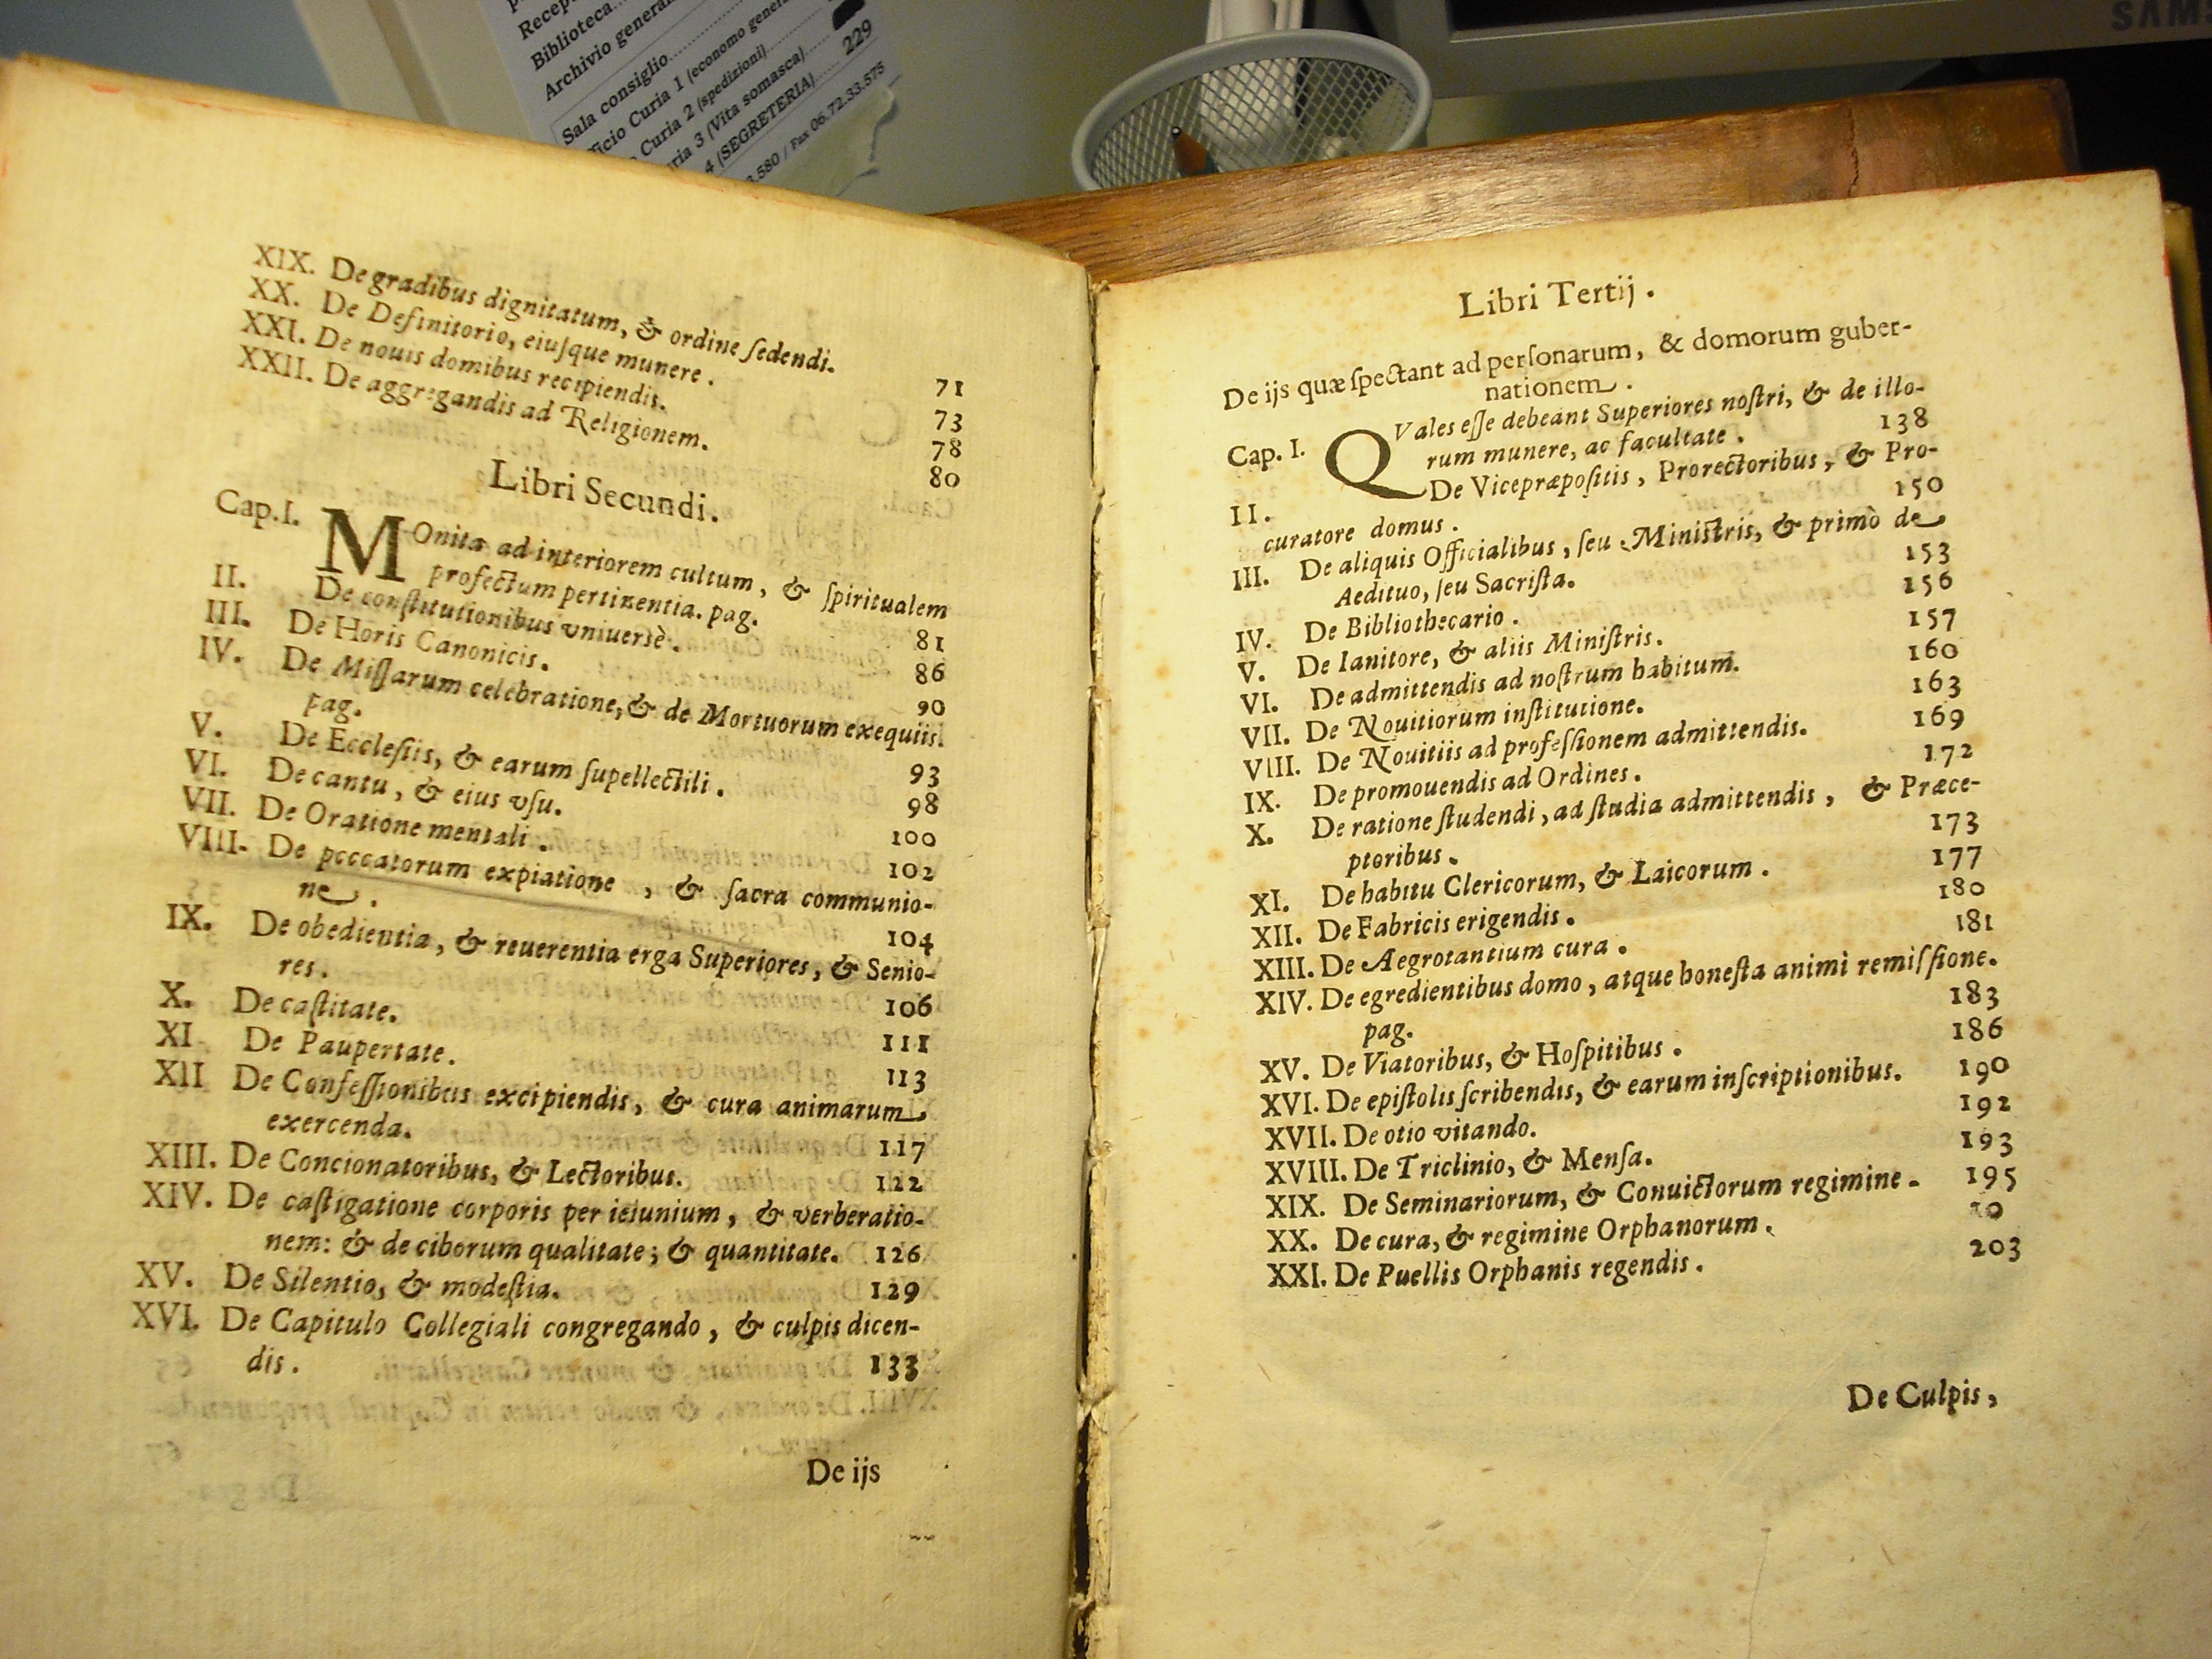 Biblioteca
Archivio general
Sala consiglio
ficio Curia 1 (economo gener
Curia 2 (spedizioni)
ria 3 (Vita somasca)
4 (SEGRETERIA) 229
.580 / Fax 06.72.33.575
SAMS
XIX. De gradibus dignitatum, & ordine ſedendi. 71
XX. De Definitorio, eiuſque munere. 73
XXI. De nouis domibus recipiendis. 78
XXII. De aggregandis ad Religionem. 80
Libri Secundi.
Cap. I. MOnita ad interiorem cultum, & ſpiritualem
profectum pertinentia. pag. 81
II. De conſtitutionibus vniuersè. 86
III. De Horis Canonicis. 90
IV. De Miſſarum celebratione, & de Mortuorum exequiis.
pag. 93
V. De Eccleſiis, & earum ſupellectili. 98
VI. De cantu, & eius vſu. 100
VII. De Oratione mentali. 102
VIII. De peccatorum expiatione, & ſacra communio-
ne. 104
IX. De obedientia, & reuerentia erga Superiores, & Senio-
res. 106
X. De caſtitate. 111
XI. De Paupertate. 113
XII De Confeſſionibus excipiendis, & cura animarum
exercenda. 117
XIII. De Concionatoribus, & Lectoribus. 122
XIV. De caſtigatione corporis per ieiunium, & verberatio-
nem: & de ciborum qualitate; & quantitate. 126
XV. De Silentio, & modeſtia. 129
XVI. De Capitulo Collegiali congregando, & culpis dicen-
dis. 133
De ijs
Libri Tertij.
De ijs quæ ſpectant ad perſonarum, & domorum guber-
nationem.
Cap. I. QVales eſſe debeant Superiores noſtri, & de illo-
rum munere, ac facultate. 138
II. De Vicepræpoſitis, Prorectoribus, & Pro-
curatore domus. 150
III. De aliquis Officialibus, ſeu Miniſtris, & primò de
Aedituo, ſeu Sacriſta. 153
IV. De Bibliothecario. 156
V. De Ianitore, & aliis Miniſtris. 157
VI. De admittendis ad noſtrum habitum. 160
VII. De Nouitiorum inſtitutione. 163
VIII. De Nouitiis ad profeſſionem admittendis. 169
IX. De promouendis ad Ordines. 172
X. De ratione ſtudendi, ad ſtudia admittendis, & Præce-
ptoribus. 173
XI. De habitu Clericorum, & Laicorum. 177
XII. De Fabricis erigendis. 180
XIII. De Aegrotantium cura. 181
XIV. De egredientibus domo, atque honeſta animi remiſſione.
pag. 183
XV. De Viatoribus, & Hoſpitibus. 186
XVI. De epiſtolis ſcribendis, & earum inſcriptionibus. 190
XVII. De otio vitando. 192
XVIII. De Triclinio, & Menſa. 193
XIX. De Seminariorum, & Conuictorum regimine. 195
XX. De cura, & regimine Orphanorum.
XXI. De Puellis Orphanis regendis. 203
De Culpis,